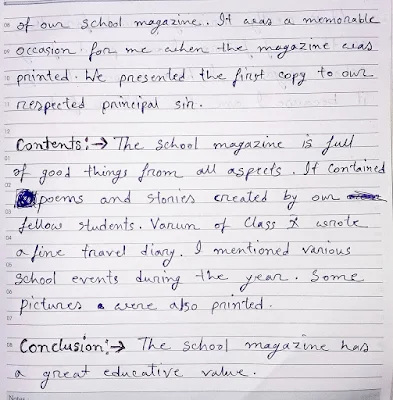 of our school magazine. It was a memorable
occasion for me when the magazine was
printed. We presented the first copy to our
respected principal sir.
Contents:→ The school magazine is full
of good things from all aspects. It contained
poems and stories created by our
fellow students. Varun of Class X wrote
a fine travel diary. I mentioned various
school events during the year. Some
pictures were also printed.
Conclusion:→ The school magazine has
a great educative value.